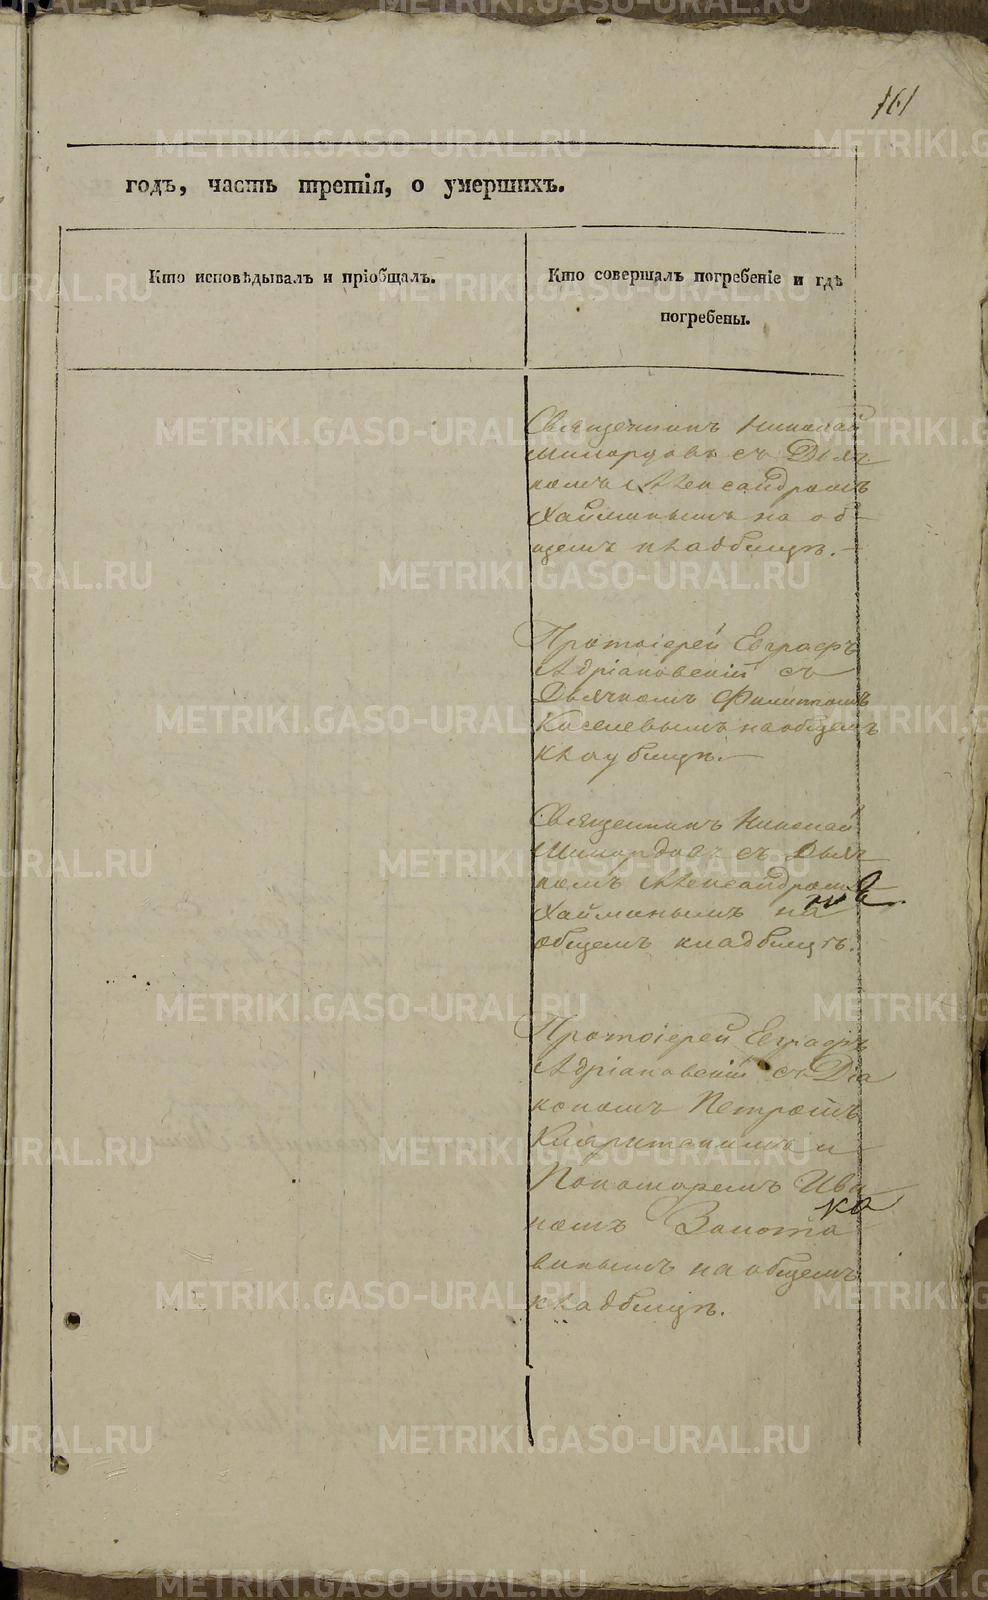 161
годъ, часть третія, о умершихъ.
Кто исповѣдывалъ и пріобщалъ.
Кто совершалъ погребеніе и гдѣ
погребены.
Священникъ Николай
Шишордовъ съ Дьяч
комъ Александромъ
Хайминымъ на об-
щемъ кладбищѣ.
Протоіерей Евграфъ
Адріановскій съ
Дьячкомъ Филитомъ
Киселевымъ на общемъ
кладбищѣ.
Священникъ Николай
Шишордовъ съ Дьяч
комъ Александромъ
Хайминымъ на
общемъ кладбищѣ.
Протоіерей Евграфъ
Адріановскій съ Діа
кономъ Петромъ
и
Пономаремъ Ива
номъ Золота
винымъ на общемъ
кладбищѣ.
METRIKI.GASO-URAL.RU